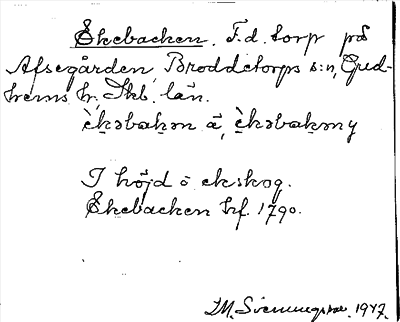 Ekebacken. F.d. torp på
Afsegården, Broddetorps s:n, Gud-
hems hr, Skb. län.
èkəbakən å, èkəbakəny
I höjd o ekskog.
Ekebacken hf. 1790.
1947.